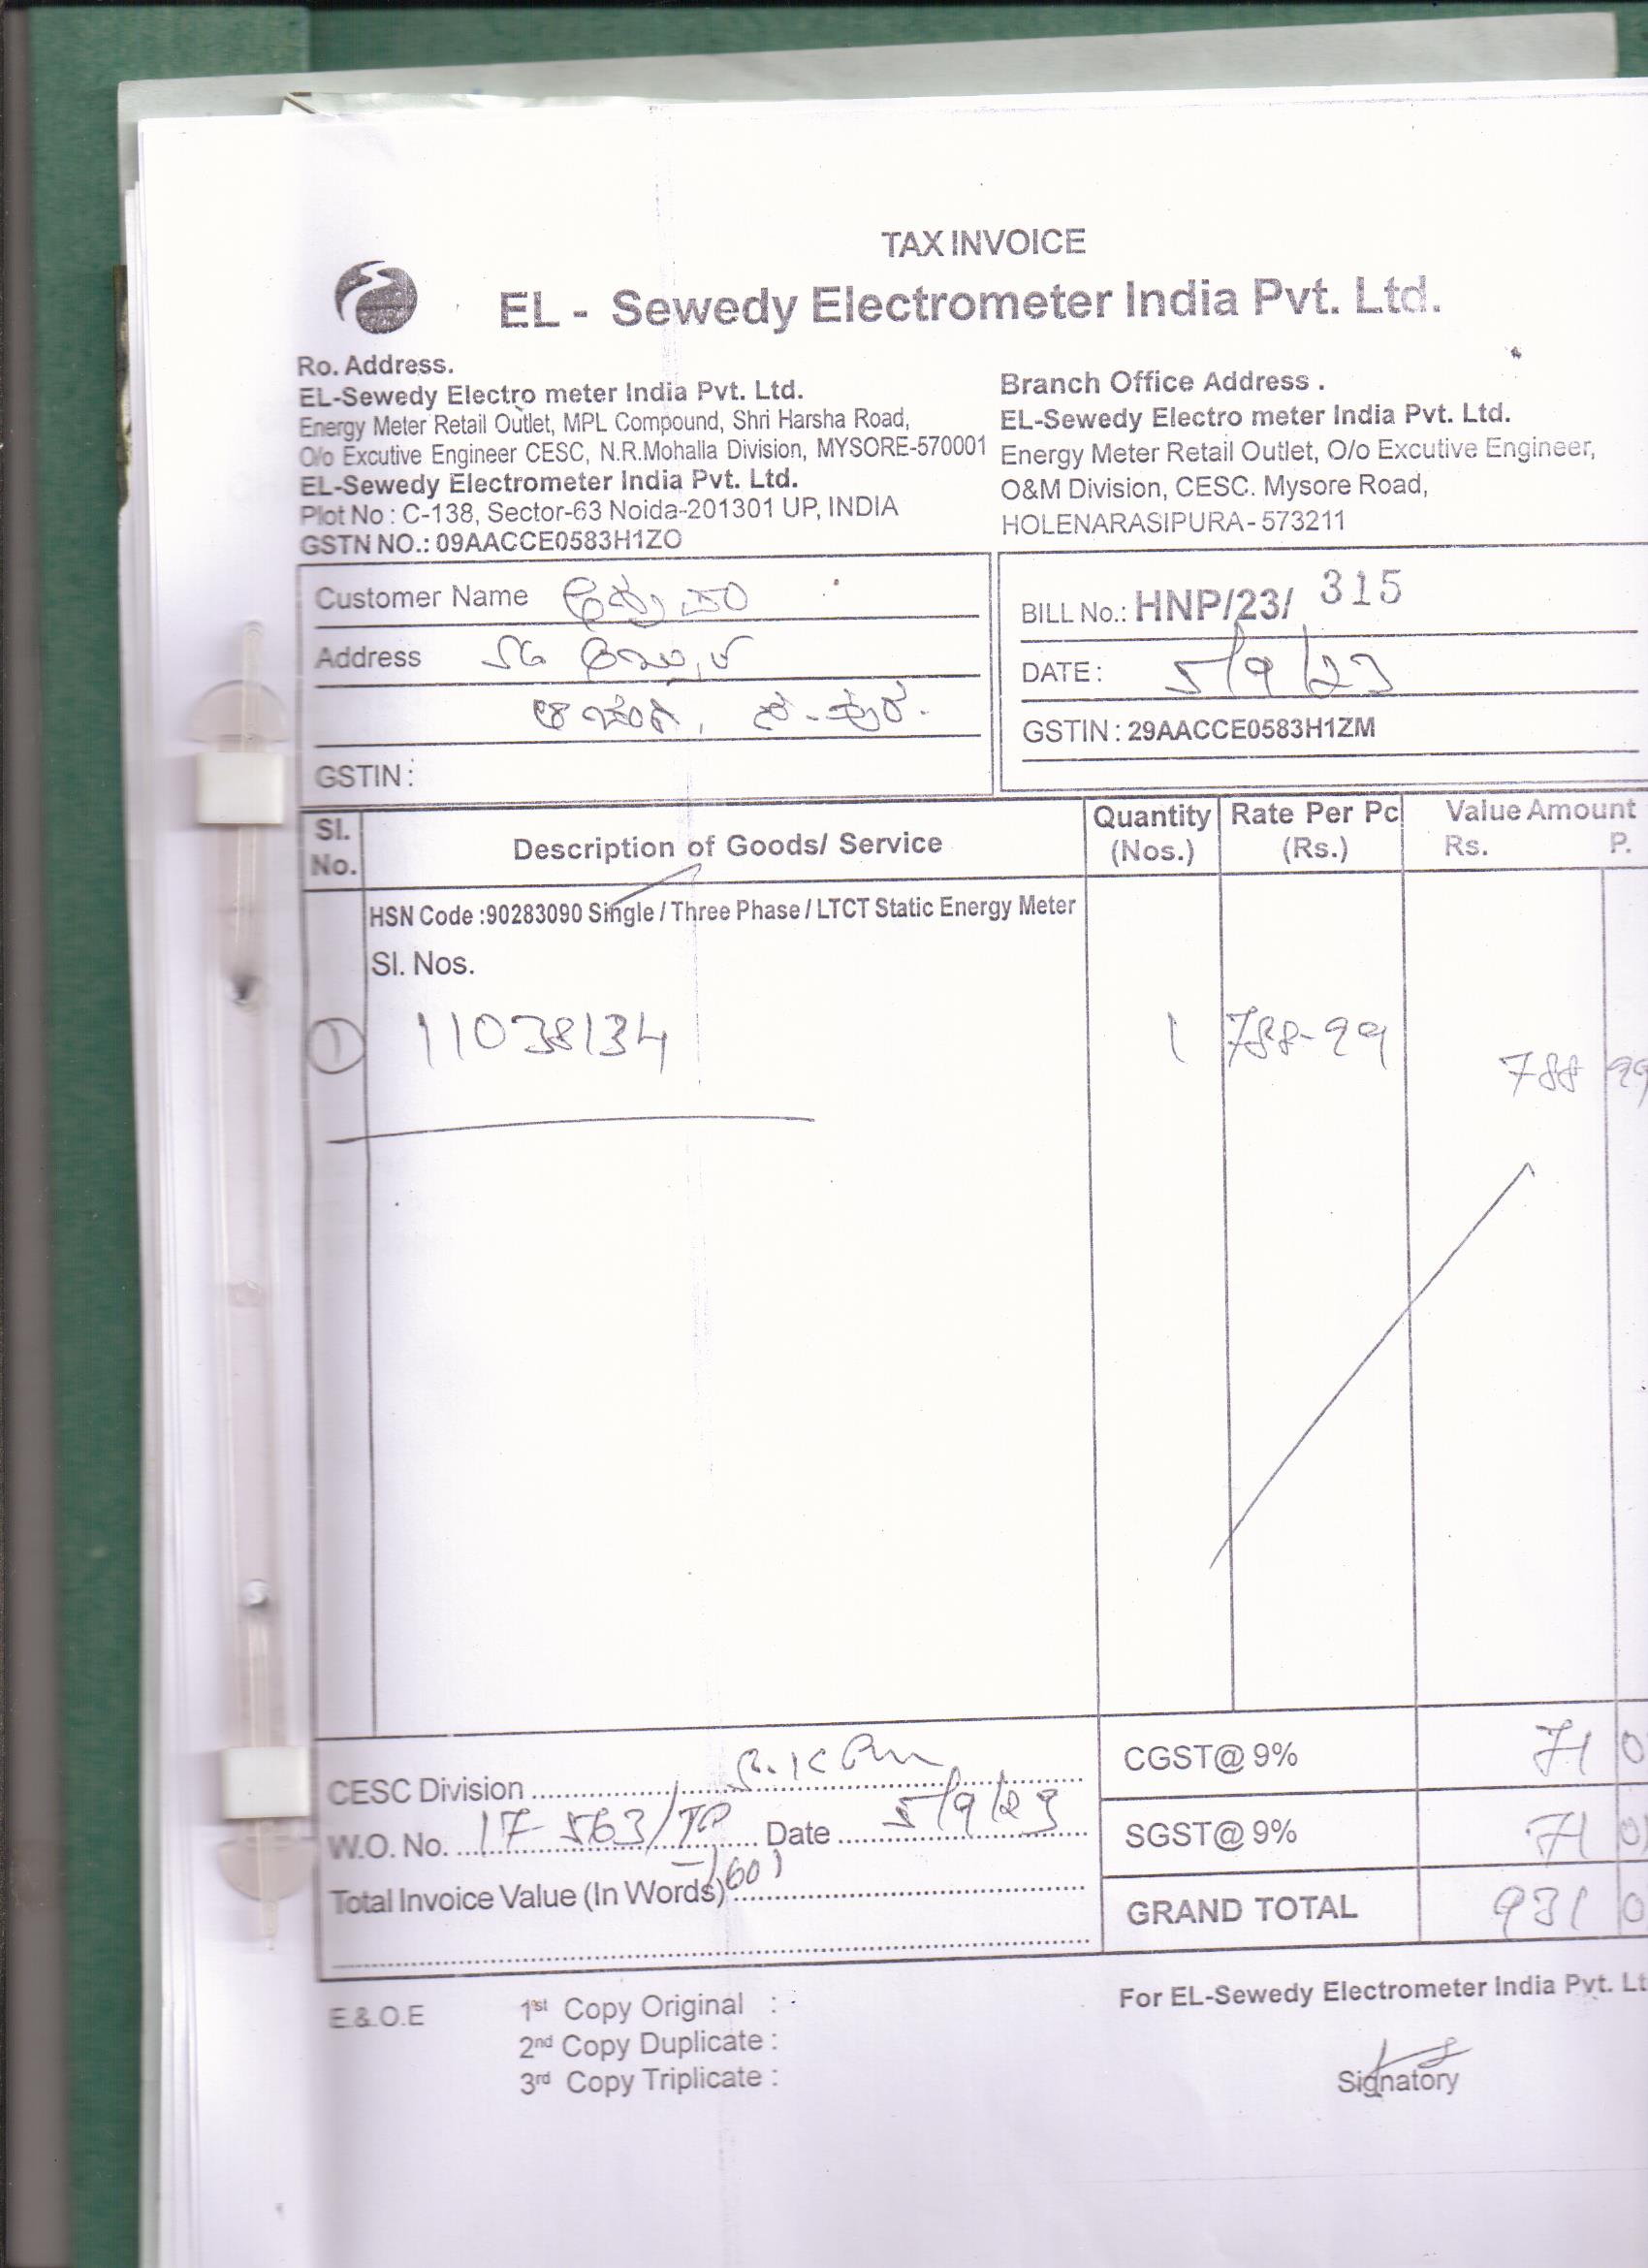 TAX INVOICE
EL - Sewedy Electrometer India Pvt. Ltd.
Ro. Address.
EL-Sewedy Electro meter India Pvt. Ltd.
Energy Meter Retail Outlet, MPL Compound, Shri Harsha Road,
O/o Excutive Engineer CESC, N.R.Mohalla Division, MYSORE-570001
EL-Sewedy Electrometer India Pvt. Ltd.
Plot No : C-138, Sector-63 Noida-201301 UP, INDIA
GSTN NO.: 09AACCE0583H1ZO
Branch Office Address .
EL-Sewedy Electro meter India Pvt. Ltd.
Energy Meter Retail Outlet, O/o Excutive Engineer,
O&M Division, CESC. Mysore Road,
HOLENARASIPURA - 573211
Customer Name
Address
GSTIN :
BILL No.: HNP/23/ 315
DATE : 5/9/23
GSTIN : 29AACCE0583H1ZM
Sl. No. Description of Goods/ Service Quantity (Nos.) Rate Per Pc (Rs.) Value Amount Rs. P.
HSN Code :90283090 Single / Three Phase / LTCT Static Energy Meter
Sl. Nos.
1 11038134 1 788-99 788 99
CESC Division
W.O. No. 17563/TP Date 5/9/23
Total Invoice Value (In Words)
CGST@ 9% 71 0
SGST@ 9% 71 0
GRAND TOTAL 931 0
E.&.O.E
1st Copy Original :
2nd Copy Duplicate :
3rd Copy Triplicate :
For EL-Sewedy Electrometer India Pvt. Lt
Signatory